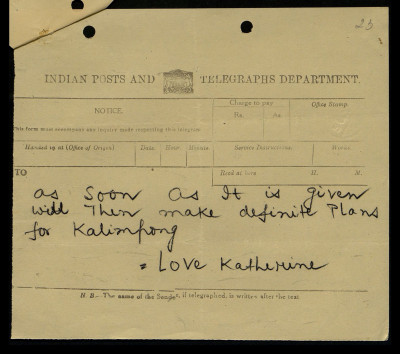 25
INDIAN POSTS AND TELEGRAPHS DEPARTMENT.
NOTICE.
This form must accompany any inquiry made respecting this telegram.
Charge to pay
Rs. As.
Office Stamp.
Handed in at (Office of Origin). Date. Hour. Minute. Service Instructions. Words.
TO
Recd. at here H. M.
as soon As It is given
will Then make definite Plans
for Kalimpong
= Love Katherine
N. B.—The name of the Sender, if telegraphed, is written after the text.